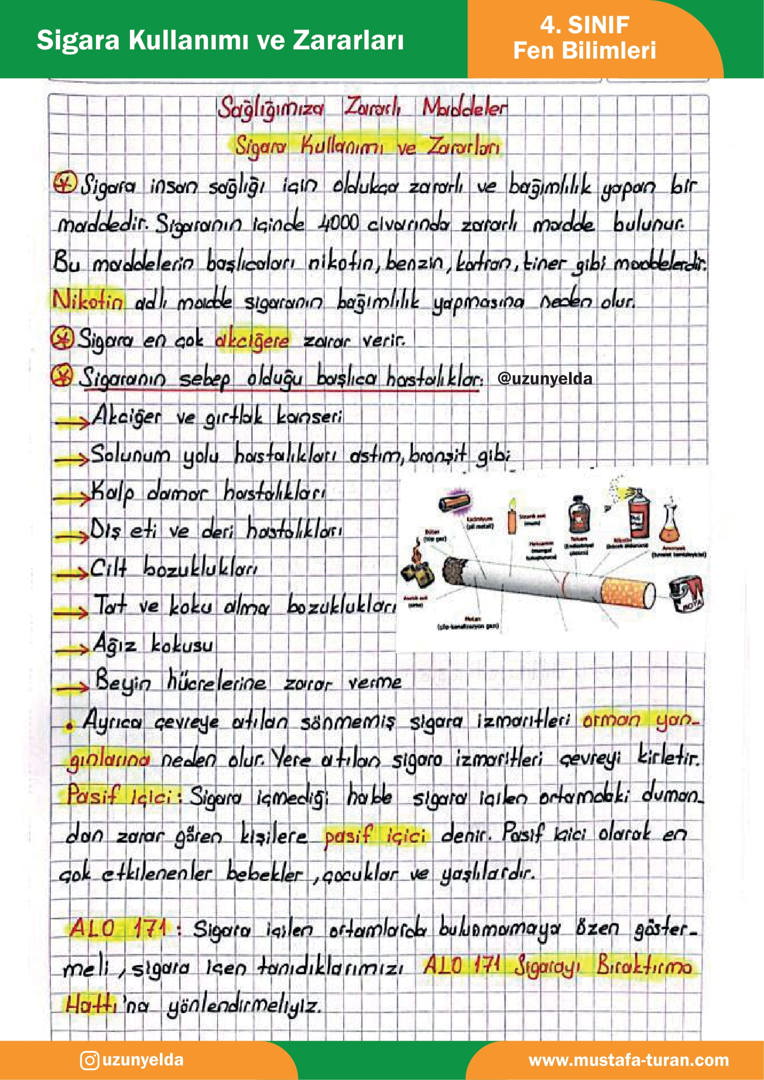 Sigara Kullanımı ve Zararları
4. SINIF
Fen Bilimleri
Sağlığımıza Zararlı Maddeler
Sigara Kullanımı ve Zararları
Sigara insan sağlığı için oldukça zararlı ve bağımlılık yapan bir
maddedir. Sigaranın içinde 4000 civarında zararlı madde bulunur.
Bu maddelerin başlıcaları nikotin, benzin, katran, tiner gibi maddelerdir.
Nikotin adlı madde sigaranın bağımlılık yapmasına neden olur.
Sigara en çok akciğere zarar verir.
Sigaranın sebep olduğu başlıca hastalıklar: @uzunyelda
Akciğer ve gırtlak kanseri
Solunum yolu hastalıkları astım, bronşit gibi
Kalp damar hastalıkları
Diş eti ve deri hastalıkları
Cilt bozuklukları
Tat ve koku alma bozuklukları
Ağız kokusu
Beyin hücrelerine zarar verme
Ayrıca çevreye atılan sönmemiş sigara izmaritleri orman yan-
gınlarına neden olur. Yere atılan sigara izmaritleri çevreyi kirletir.
Pasif içici: Sigara içmediği halde sigara içilen ortamdaki duman-
dan zarar gören kişilere pasif içici denir. Pasif içici olarak en
çok etkilenenler bebekler, çocuklar ve yaşlılardır.
ALO 171: Sigara içilen ortamlarda bulunmamaya özen göster-
meli, sigara içen tanıdıklarımızı ALO 171 Sigarayı Bıraktırma
Hattı'na yönlendirmeliyiz.
Kadmiyum
(pil metali)
Bütan
(tüp gaz)
Metan
BOYA
uzunyelda
www.mustafa-turan.com